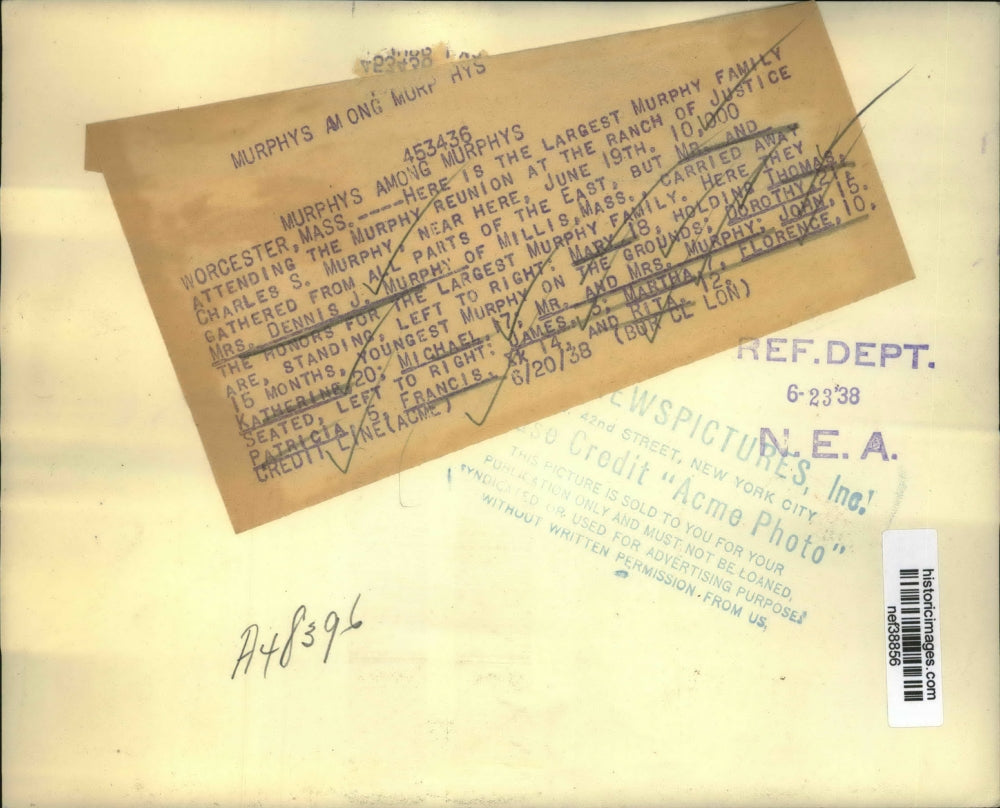 453436
MURPHYS AMONG MURP HYS
453436
MURPHYS AMONG MURPHYS
WORCESTER, MASS.----HERE IS THE LARGEST MURPHY FAMILY
ATTENDING THE MURPHY REUNION AT THE RANCH OF JUSTICE
CHARLES S. MURPHY, NEAR HERE, JUNE 19TH. 10,000
GATHERED FROM ALL PARTS OF THE EAST, BUT MR. AND
MRS. DENNIS J. MURPHY OF MILLIS, MASS. CARRIED AWAY
THE HONORS FOR THE LARGEST MURPHY FAMILY. HERE THEY
ARE, STANDING, LEFT TO RIGHT: MARY, 18, HOLDING THOMAS,
15 MONTHS, YOUNGEST MURPHY ON THE GROUNDS; DOROTHY,
KATHERINE, 20; MICHAEL, 17, MR. AND MRS. MURPHY; JOHN, 15.
SEATED, LEFT TO RIGHT: JAMES, 3; MARTHA, 7, FLORENCE, 10.
PATRICIA, 5, FRANCIS, 14, AND RITA, 12.
CREDIT LINE (ACME) 6/20/38 (BUR CL LON)
REF. DEPT.
6-23'38
N. E. A.
NEWSPICTURES, Inc.
42nd STREET, NEW YORK CITY
Credit "Acme Photo"
THIS PICTURE IS SOLD TO YOU FOR YOUR
PUBLICATION ONLY AND MUST NOT BE LOANED,
SYNDICATED OR USED FOR ADVERTISING PURPOSES
WITHOUT WRITTEN PERMISSION FROM US,
A48396
historicimages.com
nef38856